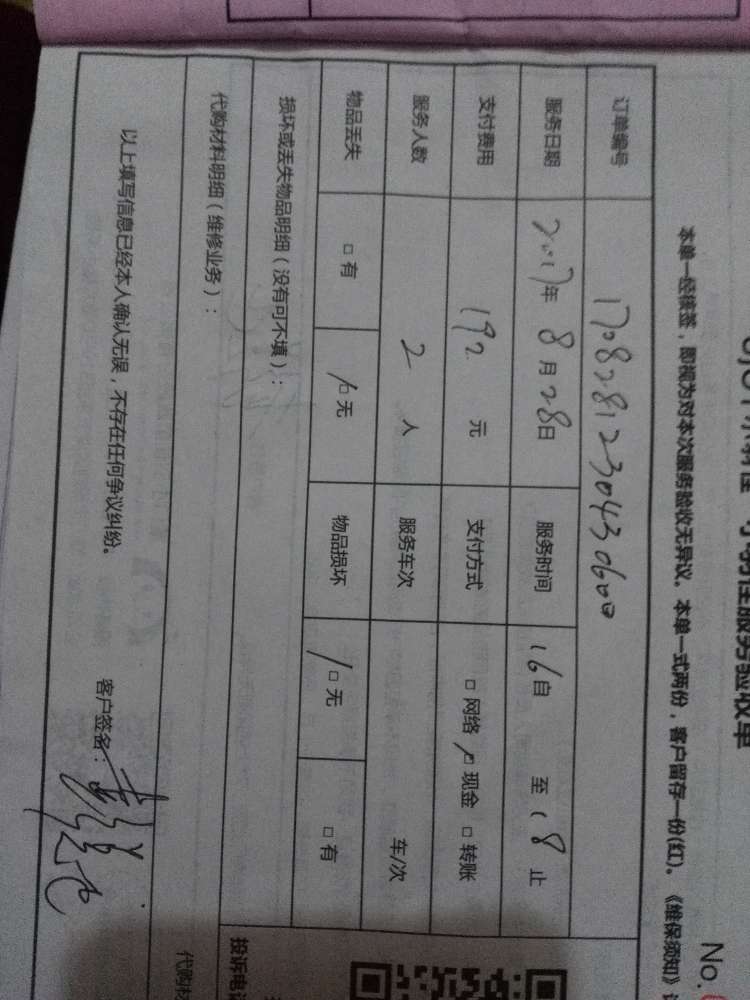 服务验收单
No.
本单一经接签，即视为对本次服务验收无异议。本单一式两份，客户留存一份(红)。《维保须知》
订单编号 1708281230430600
服务日期 2017年 8月28日 服务时间 16自 至 18止
支付费用 192 元 支付方式 □ 网络 □ 现金 □ 转账
服务人数 2 人 服务车次 车/次
物品丢失 □ 有 □ 无 物品损坏 □ 无 □ 有
损坏或丢失物品明细（没有可不填）：
代购材料明细（维修业务）：
以上填写信息已经本人确认无误，不存在任何争议纠纷。 客户签名：
投诉电
代购材